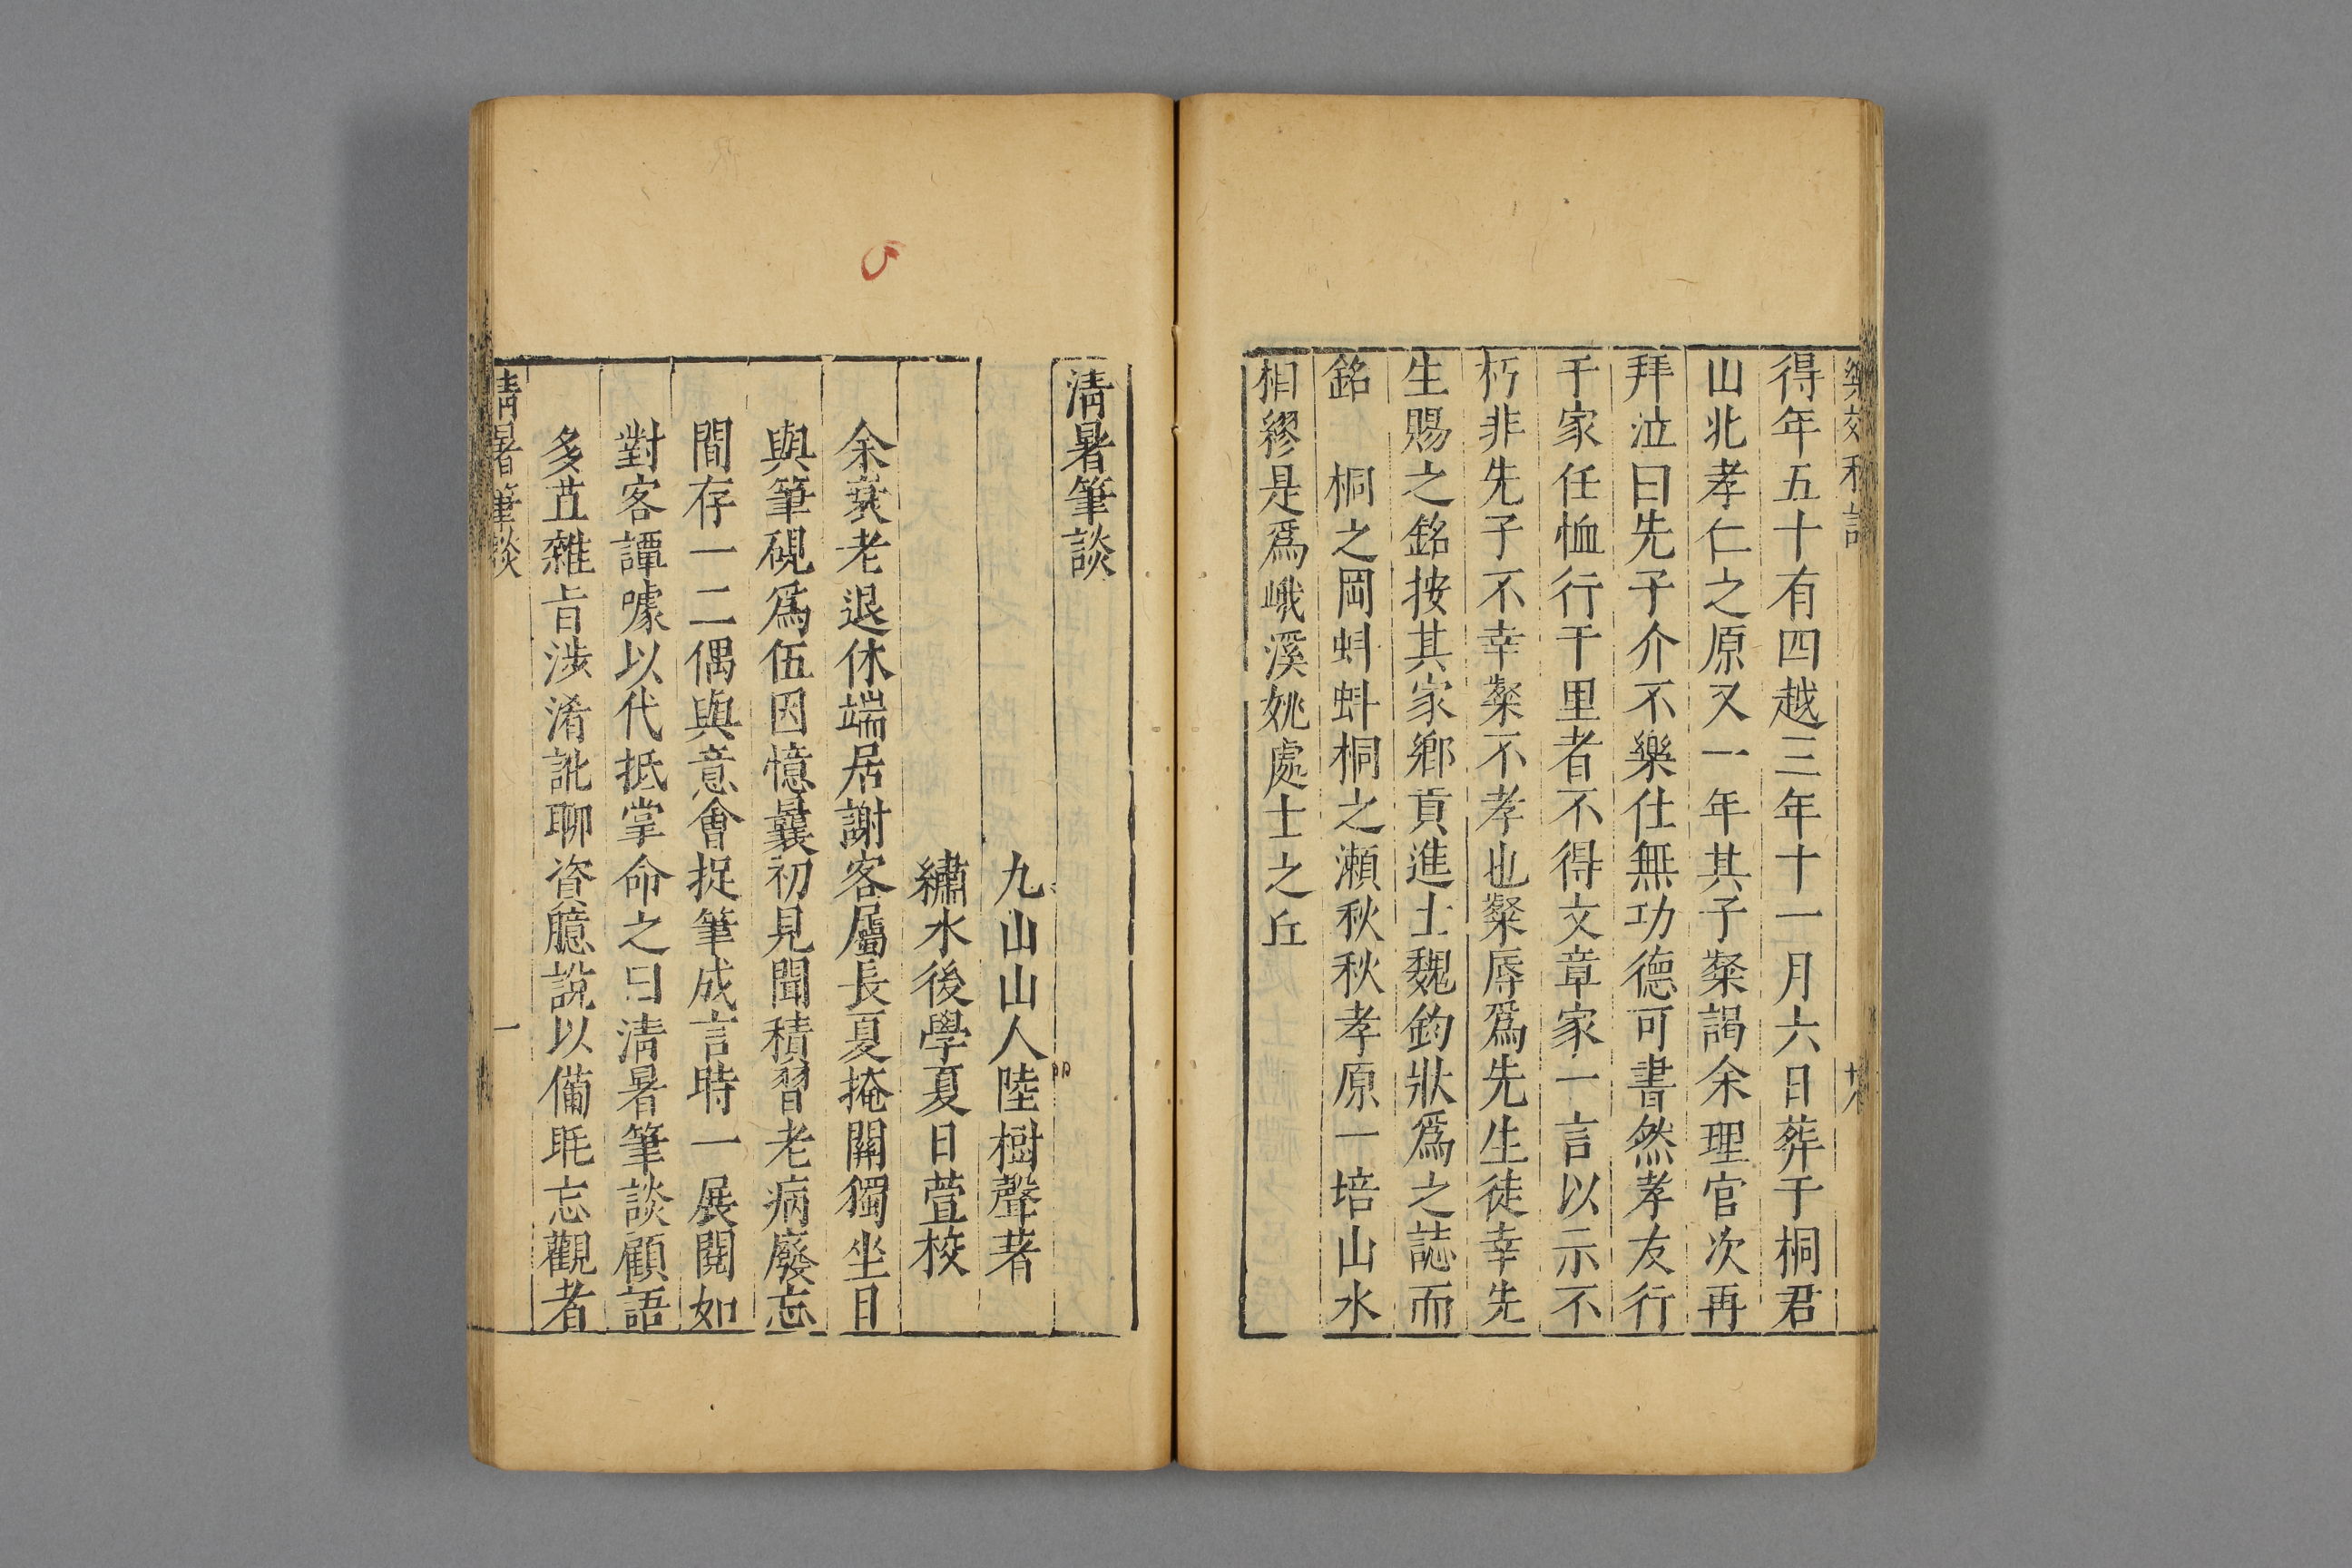 得年五十有四越三年十一月六日葬于桐君
山北孝仁之原又一年其子粲謁余理官次再
拜泣曰先子介不樂仕無功德可書然孝友行
于家任恤行于里者不得文章家一言以示不
朽非先子不幸粲不孝也粲辱爲先生徒幸先
生賜之銘按其家鄉貢進士魏鈞狀爲之誌而
銘 桐之岡蚪蚪桐之瀬秋秋孝原一培山水
相繆是爲峨溪姚處士之丘
清暑筆談
九山山人陸樹聲著
繡水後學夏日萱校
余衰老退休端居謝客屬長夏掩關獨坐日
與筆硯爲伍因憶曩初見聞積習老病廢忘
間存一二偶與意會捉筆成言時一展閱如
對客譚噱以代抵掌命之曰清暑筆談顧語
多苴雜旨涉淆訛聊資臆說以備眊忘觀者
清暑筆談 一